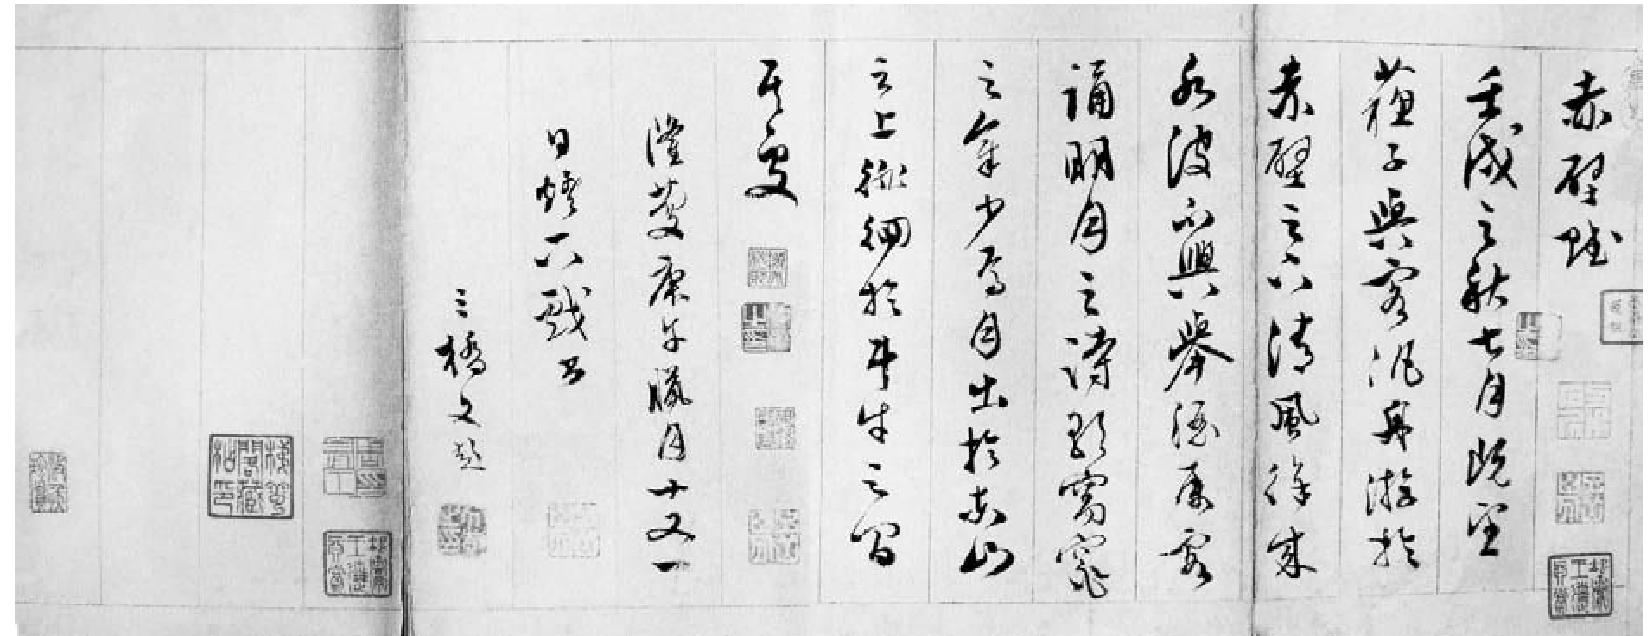 赤壁賦
壬戌之秋七月既望
蘇子與客泛舟游於
赤壁之下清風徐來
水波不興舉酒屬客
誦明月之詩歌窈窕
之章少焉月出於東山
之上徘徊於斗牛之間
隆慶庚午臘月十又一
日燈下戲書
三橋文彭